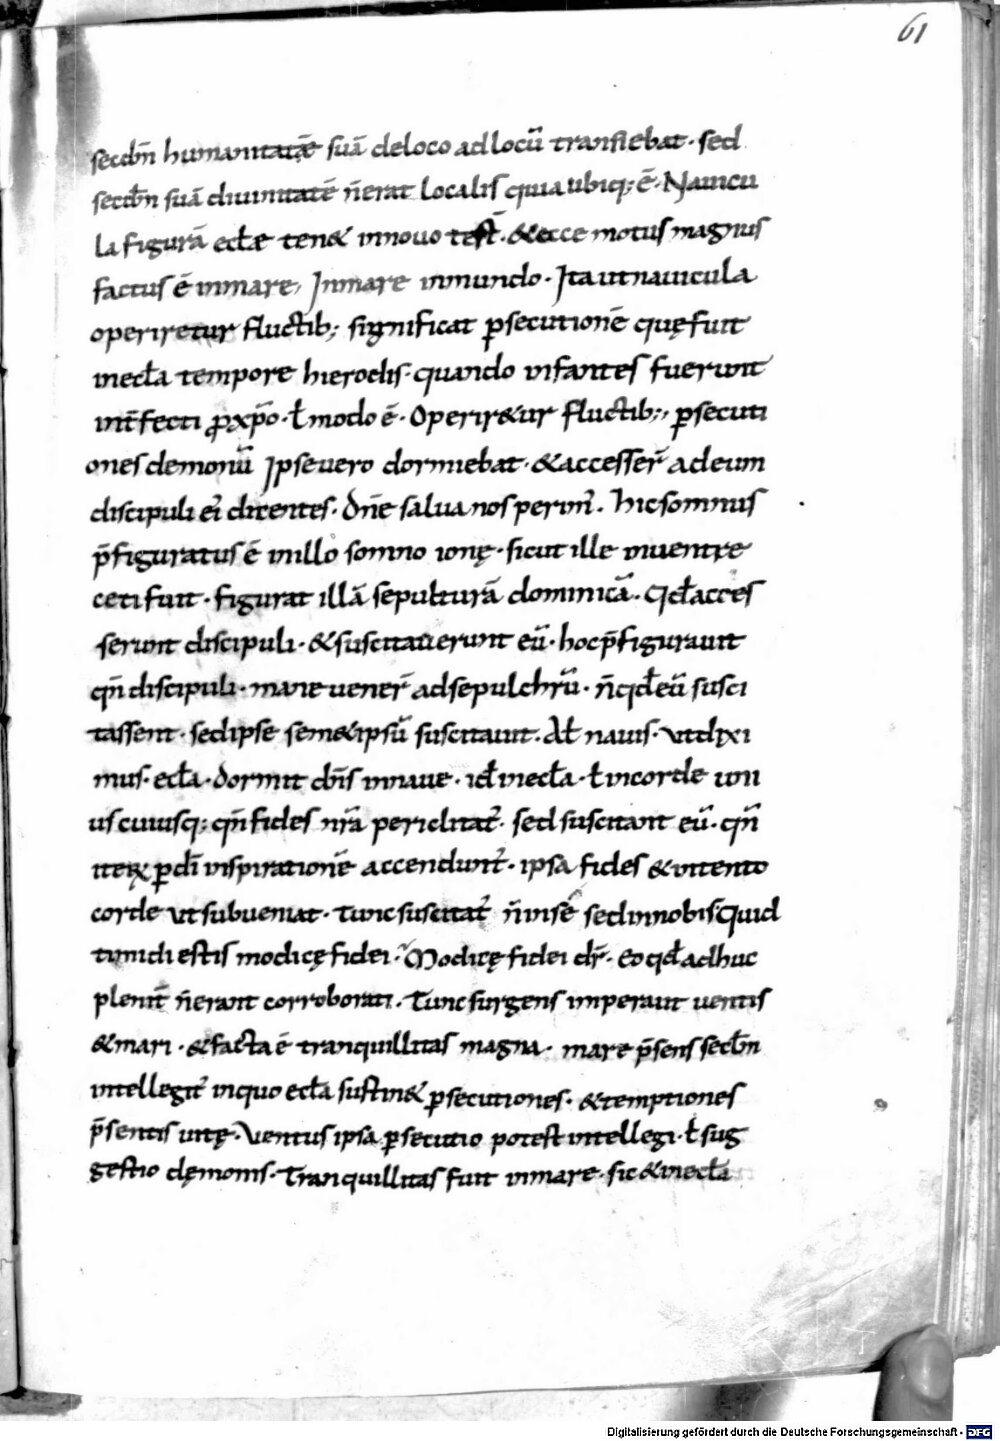 61
secdm̄ humanitatāe suā deloco adlocū transiebat· sed
secdm̄ suā diuinitatē n̄erat localis quia ubiq; ē· Nauicu
la figurā eccłae ten& innouo test̄·&ecce motus magnus
factus ē inmare, Inmare inmundo· Ita ut nauicula
operiretur fluctib; significat ꝑsecutionē quę fuit
ineccła tempore hierodis· quando infantes fuerunt
int̄fecti ꝓ xp̄o· ł modo ē· Operir&ur fluctib;, ꝑsecuti
ones demonū Ipse uero dormiebat· &accesser̄ adeum
discipuli ei᷒ dicentes· Dn̄e salua nos perim᷒· hic somnus
p̄figuratus ē inillo somno ionę· sicut ille inuentre
ceti fuit· figurat illā sepulturā dominicā· Qđ acces
serunt discipuli· &suscitauerunt eū· hoc p̄figurauit
qn̄ discipuli· mane uener̄ adsepulchrū· n̄ qđ eū susci
tassent· sed ipse sem&ipsū suscitauit· Ał nauis· ut dixi
mus· eccła· dormit dn̄s innaue· id ineccła· ł incorde uni
us cuiusq; qn̄ fides nr̄a periclitat᷑· sed suscitant eū· qn̄
iteꝝ ꝑ dī inspirationē accendunt᷑· ipsa fides &intento
corde ut subueniat· Tunc suscitat᷑ n̄ inse sed innobis· Quid
timidi estis modicę fidei· Modicę fidei dr̄· Eo qđ adhuc
plenit̄ n̄ erant corroborati· Tunc surgens imperauit uentis
&mari· &facta ē tranquillitas magna· mare p̄sens secdm̄
intellegit᷑ inquo eccła sustin& ꝑsecutiones· &temptiones
p̄sentis uitę· Ventus ipsa ꝑsecutio potest intellegi· ł sug
gestio dęmonis· Tranquillitas fuit inmare· sic &ineccła
Digitalisierung gefördert durch die Deutsche Forschungsgemeinschaft - DFG